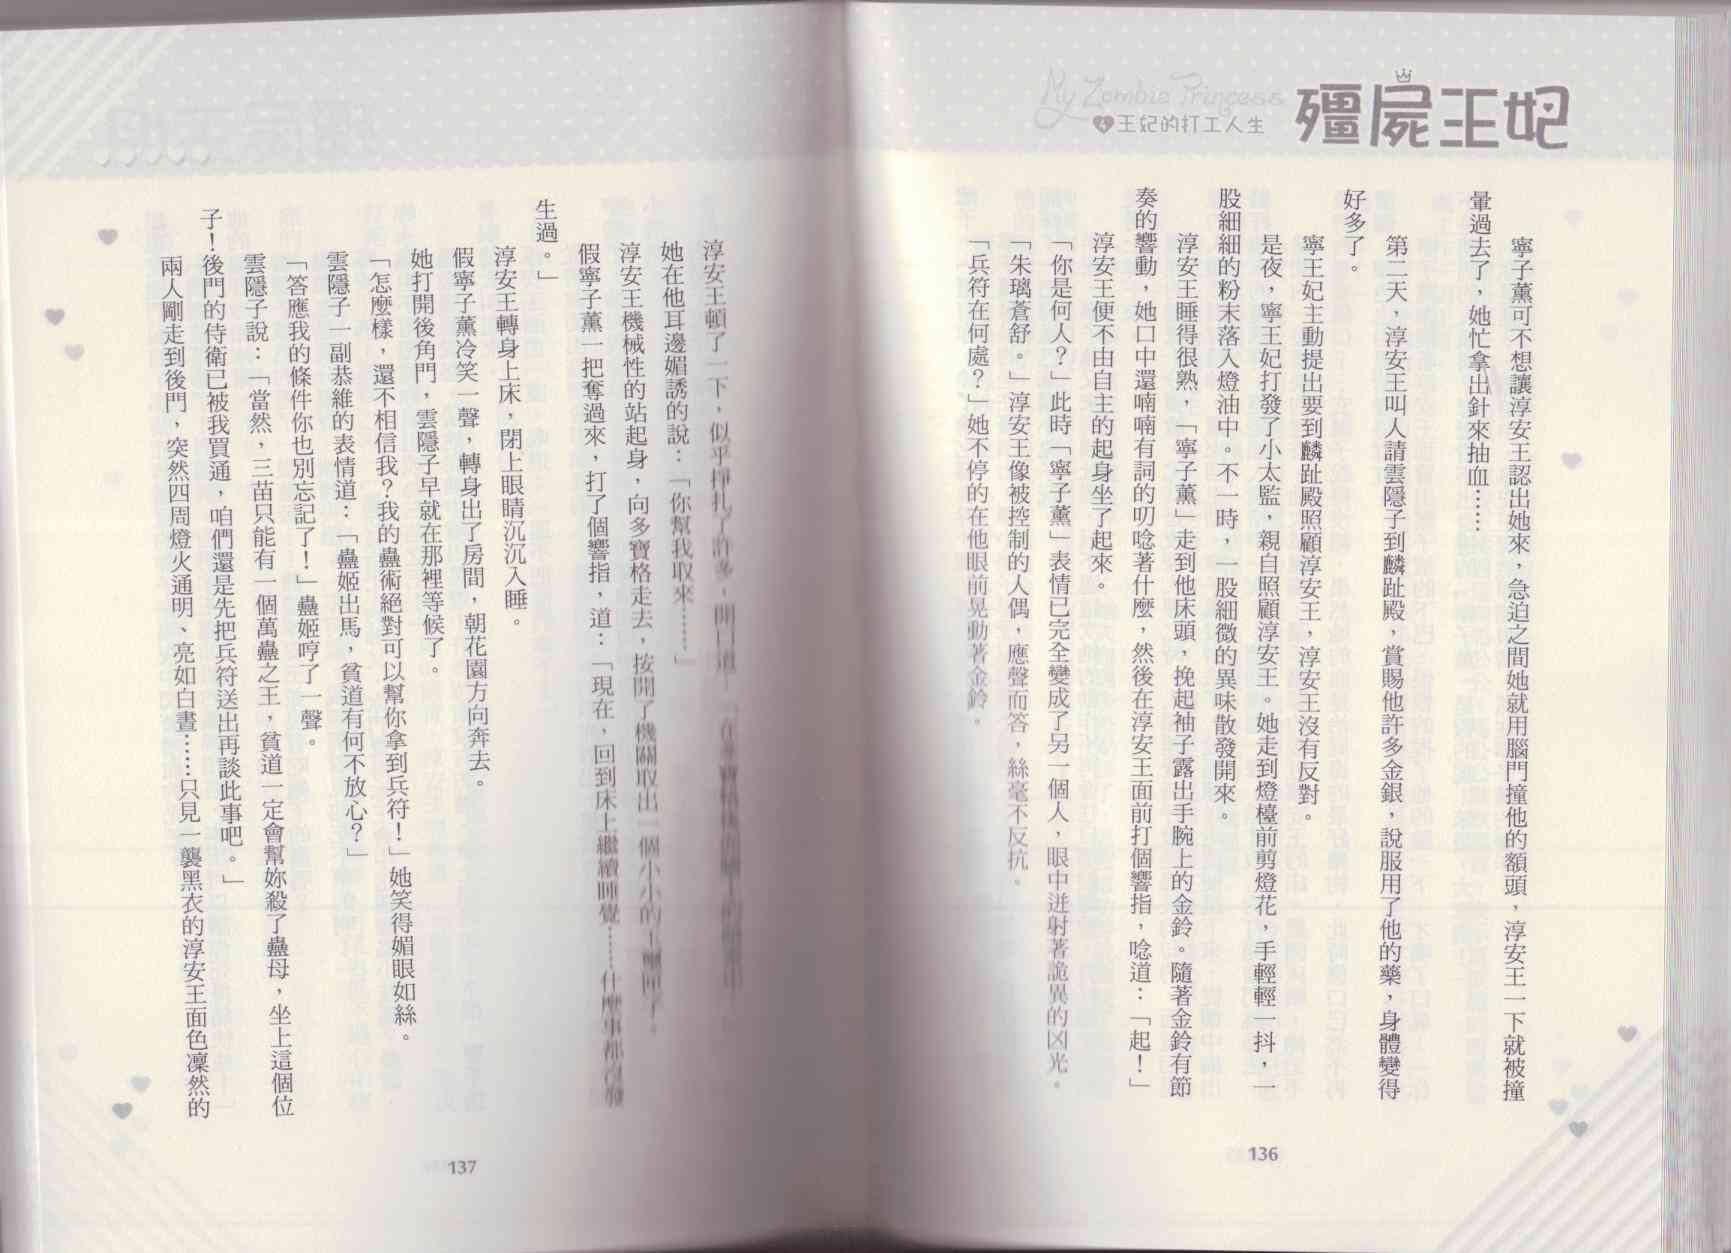 My Zombie Princess
殭屍王妃
4王妃的打工人生
寧子薰可不想讓淳安王認出她來，急迫之間她就用腦門撞他的額頭，淳安王一下就被撞
暈過去了，她忙拿出針來抽血……
第二天，淳安王叫人請雲隱子到麟趾殿，賞賜他許多金銀，說服用了他的藥，身體變得
好多了。
寧王妃主動提出要到麟趾殿照顧淳安王，淳安王沒有反對。
是夜，寧王妃打發了小太監，親自照顧淳安王。她走到燈檯前剪燈花，手輕輕一抖，一
股細細的粉末落入燈油中。不一時，一股細微的異味散發開來。
淳安王睡得很熟，「寧子薰」走到他床頭，挽起袖子露出手腕上的金鈴。隨著金鈴有節
奏的響動，她口中還喃喃有詞的叨唸著什麼，然後在淳安王面前打個響指，唸道：「起！」
淳安王便不由自主的起身坐了起來。
「你是何人？」此時「寧子薰」表情已完全變成了另一個人，眼中迸射著詭異的凶光。
「朱璃蒼舒。」淳安王像被控制的人偶，應聲而答，絲毫不反抗。
「兵符在何處？」她不停的在他眼前晃動著金鈴。
136
淳安王頓了一下，似乎掙扎了許多，開口道：「在多寶格
她在他耳邊媚誘的說：「你幫我取來……」
淳安王機械性的站起身，向多寶格走去，按開了機關取出一個小小的
假寧子薰一把奪過來，打了個響指，道：「現在，回到床上繼續睡覺……什麼事都沒發
生過。」
淳安王轉身上床，閉上眼睛沉沉入睡。
假寧子薰冷笑一聲，轉身出了房間，朝花園方向奔去。
她打開後角門，雲隱子早就在那裡等候了。
「怎麼樣，還不相信我？我的蠱術絕對可以幫你拿到兵符！」她笑得媚眼如絲。
雲隱子一副恭維的表情道：「蠱姬出馬，貧道有何不放心？」
「答應我的條件你也別忘記了！」蠱姬哼了一聲。
雲隱子說：「當然，三苗只能有一個萬蠱之王，貧道一定會幫妳殺了蠱母，坐上這個位
子！後門的侍衛已被我買通，咱們還是先把兵符送出再談此事吧。」
兩人剛走到後門，突然四周燈火通明、亮如白晝……只見一襲黑衣的淳安王面色凜然的
137